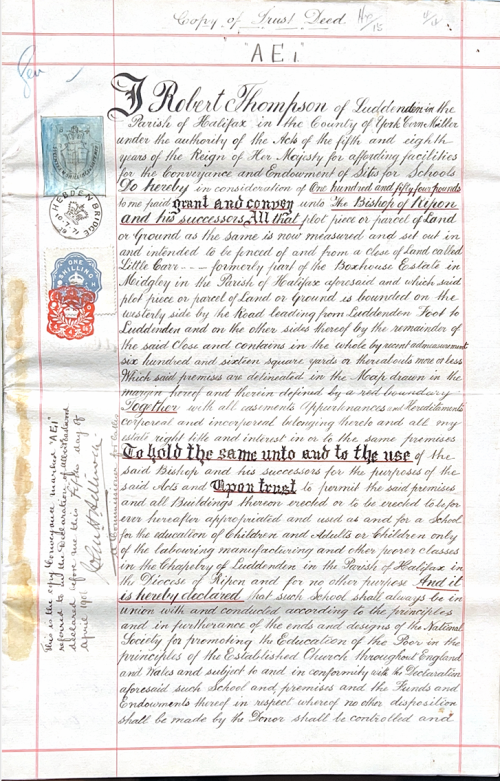 Copy of Trust Deed
"AE1"
I Robert Thompson of Luddenden in the
Parish of Halifax in the County of York Corn Miller
under the authority of the Acts of the fifth and eighth
years of the Reign of Her Majesty for affording facilities
for the Conveyance and Endowment of Sites for Schools
Do hereby in consideration of One hundred and fifty four pounds
to me paid grant and convey unto The Bishop of Ripon
and his successors All that plot piece or parcel of Land
or Ground as the same is now measured and set out in
and intended to be fenced of and from a Close of Land called
Little Carr - - - formerly part of the Boxhouse Estate in
Midgley in the Parish of Halifax aforesaid and which said
plot piece or parcel of Land or Ground is bounded on the
westerly side by the Road leading from Luddenden Foot to
Luddenden and on the other sides thereof by the remainder of
the said Close and contains in the whole by recent admeasurement
six hundred and sixteen square yards or thereabouts more or less
Which said premises are delineated in the Map drawn in the
margin hereof and therein defined by a red boundary
Together with all easements Appurtenances and Hereditaments
corporeal and incorporeal belonging thereto and all my
estate right title and interest in or to the same premises
To hold the same unto and to the use of the
said Bishop and his successors for the purposes of the
said Acts and Upon trust to permit the said premises
and all Buildings thereon erected or to be erected to be for
ever hereafter appropriated and used as and for a School
for the education of Children and Adults or Children only
of the labouring manufacturing and other poorer classes
in the Chapelry of Luddenden in the Parish of Halifax in
the Diocese of Ripon and for no other purpose And it
is hereby declared that such School shall always be in
union with and conducted according to the principles
and in furtherance of the ends and designs of the National
Society for promoting the Education of the Poor in the
principles of the Established Church throughout England
and Wales and subject to and in conformity with the Declaration
aforesaid such School and premises and the Funds and
Endowments thereof in respect whereof no other disposition
shall be made by the Donor shall be controlled and
HEBDEN BRIDGE
ONE SHILLING
This is the copy Conveyance marked "AE1"
referred to in the Declaration of
declared before me this Fifth day of
April 1901